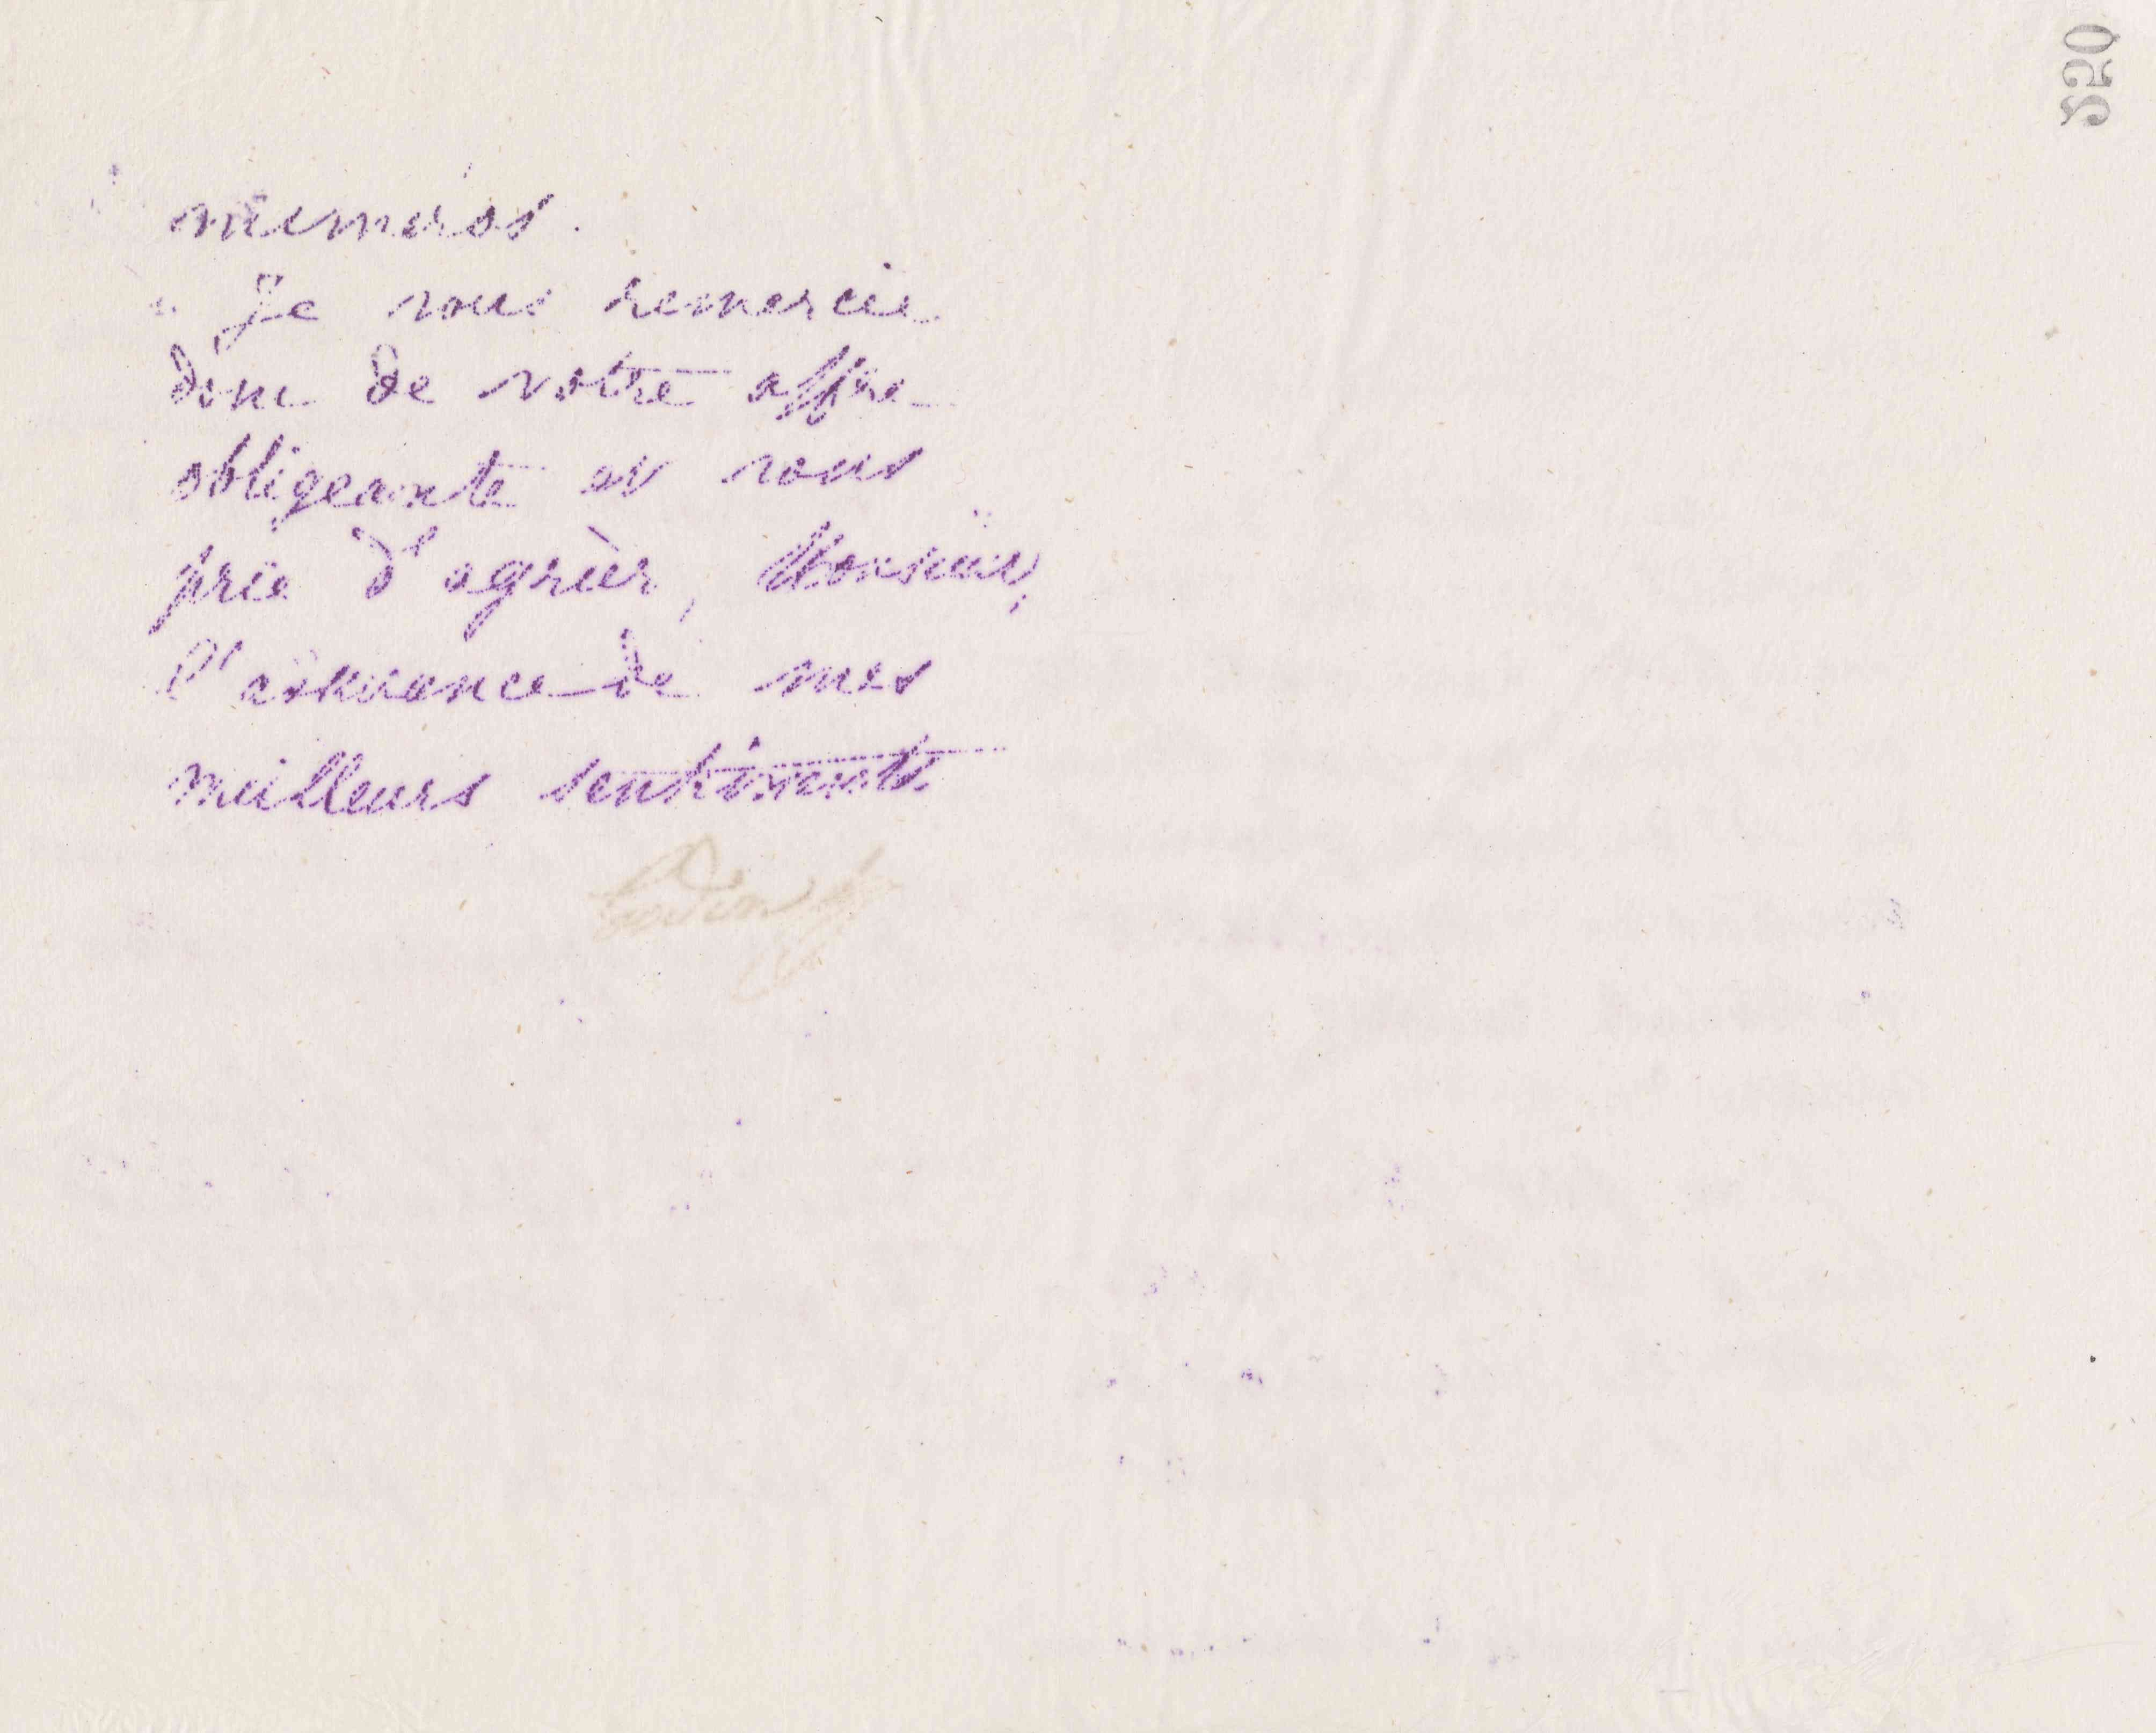 220
numéros.
Je vous remercie
donc de votre offre
obligeante et vous
prie d'agréer, Monsieur,
l'assurance de mes
meilleurs sentiments
Godin